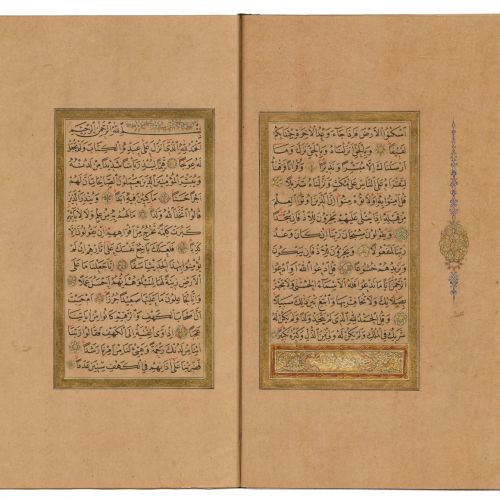 اسْكُنُوا الْأَرْضَ فَإِذَا جَاءَ وَعْدُ الْآخِرَةِ جِئْنَا بِكُمْ
لَفِيفًا وَبِالْحَقِّ أَنْزَلْنَاهُ وَبِالْحَقِّ نَزَلَ وَمَا
أَرْسَلْنَاكَ إِلَّا مُبَشِّرًا وَنَذِيرًا وَقُرْآنًا فَرَقْنَاهُ
لِتَقْرَأَهُ عَلَى النَّاسِ عَلَى مُكْثٍ وَنَزَّلْنَاهُ تَنْزِيلًا
قُلْ آمِنُوا بِهِ أَوْ لَا تُؤْمِنُوا إِنَّ الَّذِينَ أُوتُوا الْعِلْمَ
مِنْ قَبْلِهِ إِذَا يُتْلَى عَلَيْهِمْ يَخِرُّونَ لِلْأَذْقَانِ سُجَّدًا
وَيَقُولُونَ سُبْحَانَ رَبِّنَا إِنْ كَانَ وَعْدُ
رَبِّنَا لَمَفْعُولًا وَيَخِرُّونَ لِلْأَذْقَانِ يَبْكُونَ
وَيَزِيدُهُمْ خُشُوعًا قُلِ ادْعُوا اللَّهَ أَوِ ادْعُوا
الرَّحْمَنَ أَيًّا مَا تَدْعُوا فَلَهُ الْأَسْمَاءُ الْحُسْنَى وَلَا تَجْهَرْ
بِصَلَاتِكَ وَلَا تُخَافِتْ بِهَا وَابْتَغِ بَيْنَ ذَلِكَ سَبِيلًا
وَقُلِ الْحَمْدُ لِلَّهِ الَّذِي لَمْ يَتَّخِذْ وَلَدًا وَلَمْ يَكُنْ لَهُ
شَرِيكٌ فِي الْمُلْكِ وَلَمْ يَكُنْ لَهُ وَلِيٌّ مِنَ الذُّلِّ وَكَبِّرْهُ تَكْبِيرًا
بِسْمِ اللَّهِ الرَّحْمَنِ الرَّحِيمِ
الْحَمْدُ لِلَّهِ الَّذِي أَنْزَلَ عَلَى عَبْدِهِ الْكِتَابَ وَلَمْ يَجْعَلْ
لَهُ عِوَجًا قَيِّمًا لِيُنْذِرَ بَأْسًا شَدِيدًا مِنْ لَدُنْهُ
وَيُبَشِّرَ الْمُؤْمِنِينَ الَّذِينَ يَعْمَلُونَ الصَّالِحَاتِ أَنَّ لَهُمْ
أَجْرًا حَسَنًا مَاكِثِينَ فِيهِ أَبَدًا وَيُنْذِرَ الَّذِينَ
قَالُوا اتَّخَذَ اللَّهُ وَلَدًا مَا لَهُمْ بِهِ مِنْ عِلْمٍ وَلَا لِآبَائِهِمْ
كَبُرَتْ كَلِمَةً تَخْرُجُ مِنْ أَفْوَاهِهِمْ إِنْ يَقُولُونَ إِلَّا
كَذِبًا فَلَعَلَّكَ بَاخِعٌ نَفْسَكَ عَلَى آثَارِهِمْ إِنْ لَمْ
يُؤْمِنُوا بِهَذَا الْحَدِيثِ أَسَفًا إِنَّا جَعَلْنَا مَا عَلَى
الْأَرْضِ زِينَةً لَهَا لِنَبْلُوَهُمْ أَيُّهُمْ أَحْسَنُ عَمَلًا
وَإِنَّا لَجَاعِلُونَ مَا عَلَيْهَا صَعِيدًا جُرُزًا أَمْ حَسِبْتَ
أَنَّ أَصْحَابَ الْكَهْفِ وَالرَّقِيمِ كَانُوا مِنْ آيَاتِنَا
عَجَبًا إِذْ أَوَى الْفِتْيَةُ إِلَى الْكَهْفِ فَقَالُوا رَبَّنَا
آتِنَا مِنْ لَدُنْكَ رَحْمَةً وَهَيِّئْ لَنَا مِنْ أَمْرِنَا رَشَدًا
فَضَرَبْنَا عَلَى آذَانِهِمْ فِي الْكَهْفِ سِنِينَ عَدَدًا